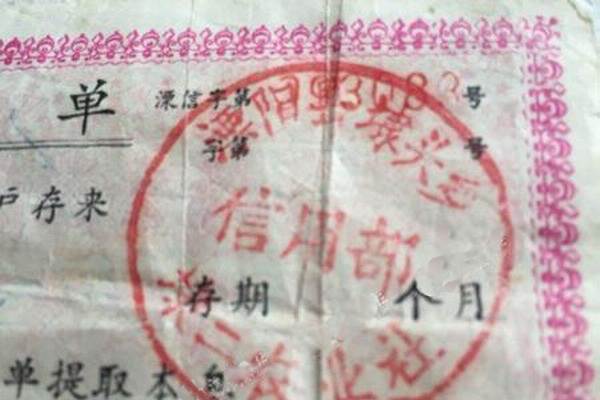 单 溧信字第 号
字第 号
户存来
存期 个月
单提取本息
溧阳县埭头
信用部
业社